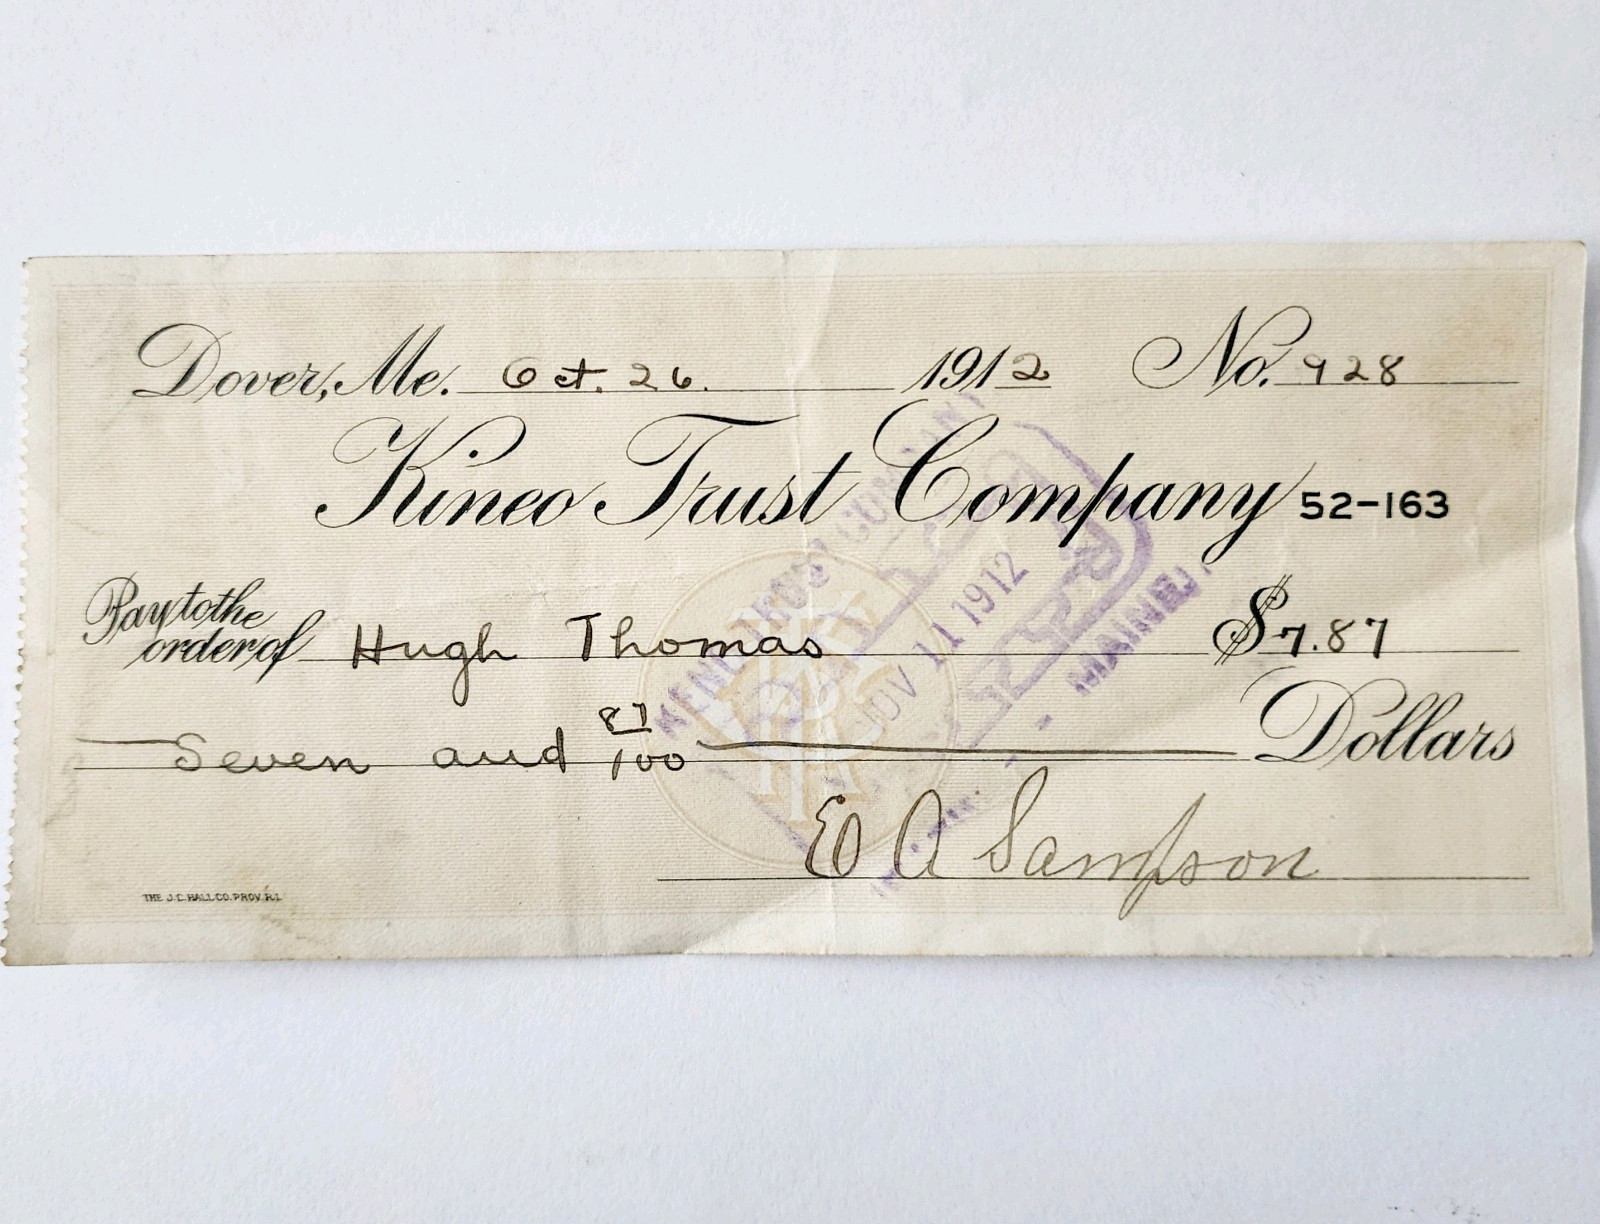 Dover, Me. Oct. 26. 1912 No. 928
Kineo Trust Company 52-163
Pay to the
order of Hugh Thomas $7.87
Seven and 87/100 Dollars
E A Sampson
THE J.C. HALL CO. PROV. R.I.
NOV 11 1912
MAINE